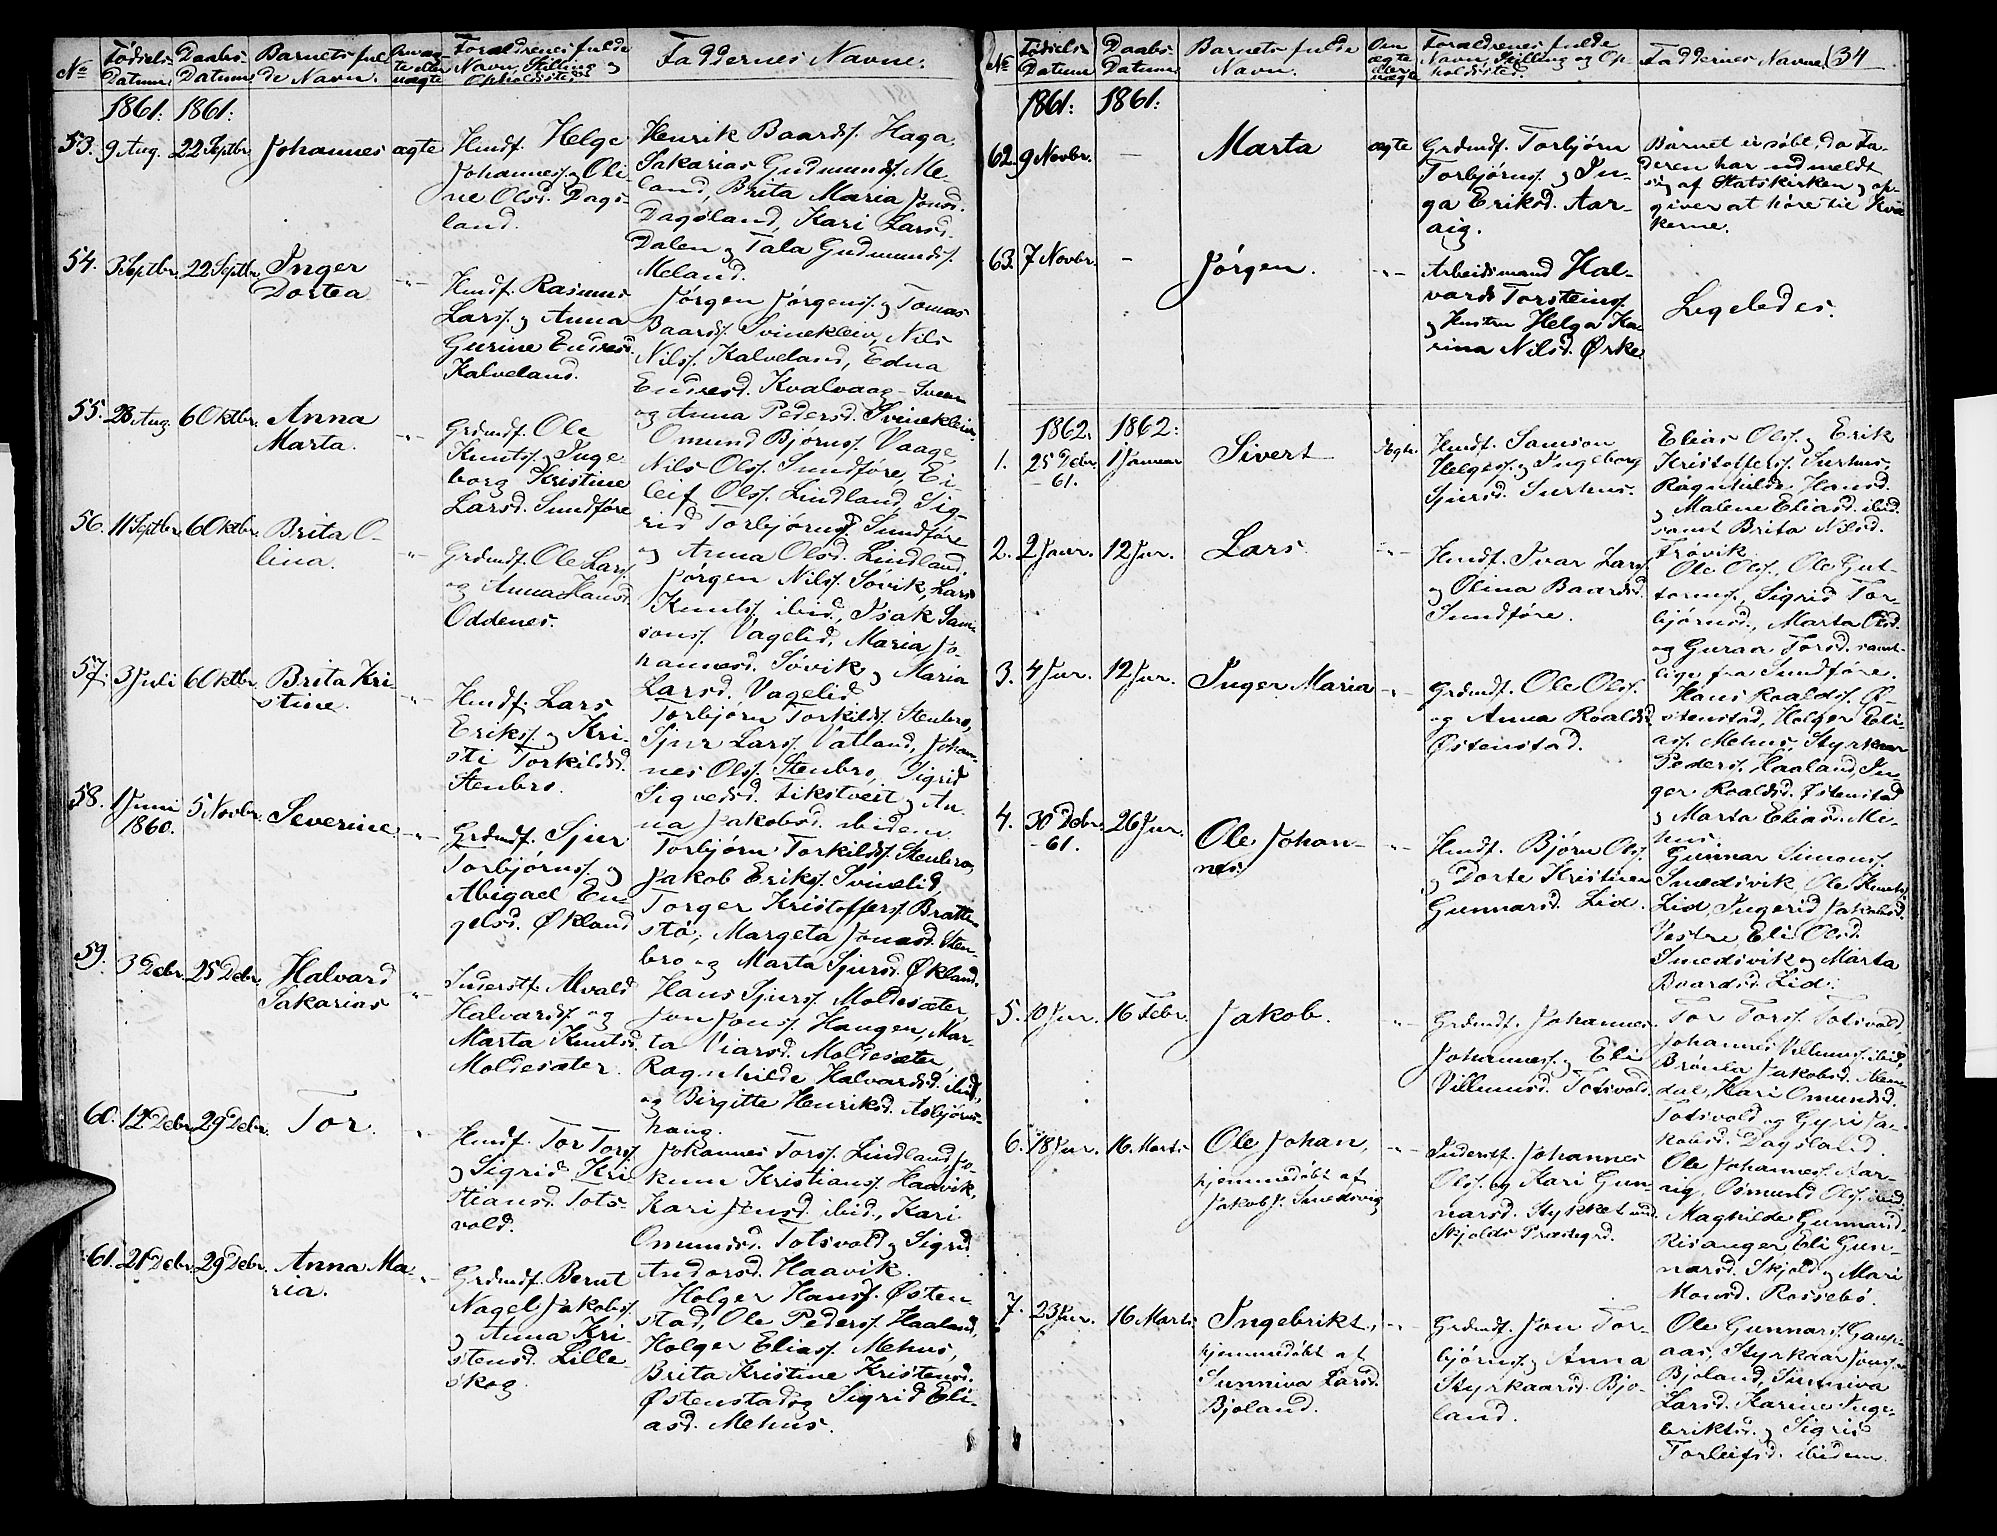 №
Fødsels-
Datum.
Daabs-
Datum
Barnets ful
de Navn.
Om æg
te eller
uægte
Forældrenes fulde
Navn, Stilling og
Opholdssted
Faddernes Navne.
1861: 1861:
53. 9 Aug. 22 Septbr. Johannes ægte
Hmdf. Helge
Johanness. og Oli-
ne Olsd. Dags-
land.
Henrik Baards. Haga,
Sakarias Gudmunds. Me-
land, Brita Maria Jonsd.
Dagsland, Kari Larsd.
Dalen og Tala Gudmunds.
Meland.
54. 3 Septbr. 22 Septbr. Inger
Dortea -"-
Hmdf. Rasmus
Larss. og Anna
Gurine Endresd.
Kalveland.
Jørgen Jørgens. og Tomas
Baards. Svinekleiv, Nils
Nilss. Kalveland, Edna
Endresd. Kvalvaag-Sveen
og Anna Pedersd. Svinekleiv.
55. 28 Aug. 6 Oktbr. Anna
Marta. -"-
Grdmdf. Ole
Knuts. og Inge-
borg Kristine
Larsd. Sundføre
Omund Bjørns. Vaage,
Nils Olss. Sundføre, Ei-
leif Olss. Lindland, Sig-
rid Torbjørnsd. Sundføre
og Anna Olsd. Lindland.
56. 11 Septbr. 6 Oktbr. Brita O-
lina. -"-
Grdmdf. Ole Larss.
og Anna Hansd.
Oddenes.
Jørgen Nilss. Søvik, Lars
Knuts. ibid., Isak Sam-
sons. Vagelid, Maria Jo-
hannesd. Søvik og Maria
Larsd. Vagelid.
57. 3 Juli 6 Oktbr. Brita Kri-
stine. -"-
Hmdf. Lars
Erikss. og Kri-
sti Torkildsd.
Stenbro.
Torbjørn Torkilds. Stenbro,
Sjur Larss. Vatland, Johan-
nes Olss. Stenbro, Sigrid
Sigvedsd. Eikstveit og An-
na Jakobsd. ibidem.
58. 1 Juni
1860. 5 Novbr. Severine -"-
Grdmdf. Sjur
Torbjørns. og
Abigael En-
gelsd. Økland
Torbjørn Torkilds. Stenbro,
Jakob Eriks. Svinelid,
Torger Kristoffers. Bratte-
stø, Margeta Jonasd. Sten-
bro og Marta Sjursd. Økland.
59. 3 Debr. 25 Debr. Halvard
Sakarias -"-
Inderstf. Alvald
Halvards. og
Marta Knutsd.
Moldesæter.
Hans Sjurs. Moldesæter,
Jon Jons. Haugen, Mar-
ta Viarsd. Moldesæter,
Ragnhilde Halvardsd. ibid,
og Birgitte Henriksd. Asbjørns-
haug.
60. 12 Debr. 29 Debr. Tor. "
Hmdf. Tor Torss.
og Sigrid Kri
stiansd. Tots-
vold.
Johannes Torss. Lindland, Jo-
kum Kristians. Haavik,
Kari Jensd. ibid., Kari
Omundsd. Totsvold og Sigrid
Andorsd. Haavik.
61. 21 Debr. 29 Debr. Anna Ma-
ria. -"-
Grdmdf. Bernt
Nagel Jakobs.
og Anna Kri-
stensd. Lille-
skog
Holger Hanss. Østen-
stad, Ole Peders. Haaland,
Holger Elias. Mehus,
Brita Kristine Kristensd.
Østenstad og Sigrid Eli-
asd. Mehus.
№
Fødsels-
Datum
Daabs-
Datum
Barnets fulde
Navn.
Om
ægte
eller
uægte
Forældrenes fulde
Navn, Stilling og Op-
holdssted.
Faddernes Navne. 34
1861: 1861:
62. 9 Novbr. — Marta ægte
Grdmdf. Torbjørn
Torbjørns. og In-
ga Eriksd. Aar-
aig.
Barnet er døbt, da Fa-
deren har udmeldt
sig af Statskirken og op-
giver at høre til Kvæ
kerne.
63. 7 Novbr. — Jørgen. -"-
Arbeidsmand Hal-
vard Torsteins.
og Hustru Helga Ka-
rina Nilsd. Ørke
Ligeledes.
1862: 1862:
1. 25 Debr.
-61. 1 Januar Sivert Ægte
Hmdf. Samson
Helges. og Ingeborg
Sjursd. Surhus.
Elias Olss. og Erik
Kristoffers. Surhus,
Ragnhilde Hansd.
og Malene Eliasd. ibid.
samt Brita Nilsd.
Frøvik.
2. 2 Janr. 12 Jnr. Lars -"-
Hmdf. Ivar Larss.
og Olina Baardsd.
Sundføre.
Ole Olss., Ole Gut-
torms., Sigrid Tor-
bjørnsd., Marta Olsd.
og Guraa Torsd. samt-
lige fra Sundføre.
3. 4 Jnr. 12 Jnr. Inger Maria -"-
Grdmdf. Ole Olss.
og Anna Roaldsd.
Østenstad.
Hans Roalds. Ø-
stenstad, Holger Eli-
ass. Mehus, Styrkaar
Peders. Haaland, In-
ger Roaldsd. Østenstad
og Marta Eliasd. Me-
hus.
4. 30 Debr.
-61. 26 Jnr. Ole Johan-
nes. -"-
Hmdf. Bjørn Olss.
og Dorte Kristine
Gunnarsd. Lid.
Gunnar Simons.
Smedsvik, Ole Knuts.
Lid, Ingerid Jakobsd.
Vestre, Eli Olsd.
Smedsvik og Marta
Baardsd. Lid.
5. 10 Jnr. 16 Febr. Jakob. -"-
Grdmdf. Johannes
Johanness. og Eli
Villumsd. Totsvold.
Tor Torss. Totsvold,
Johannes Villums. ibid,
Brønla Jakobsd.
dal, Kari Omundsd.
Totsvold og Gyri Ja-
kobsd. Dagsland.
6. 18 Jnr. 16 Marts Ole Johan,
hjemmedøbt af
Jakob J. Smedsvig -"-
Inderstf. Johannes
Olss. og Kari Gun-
narsd. Stykket und.
Skjolds Præstegrd.
Ole Johanness. Aar-
aig, Osmund Olss. ibid,
Maghilde Gunnarsd.
Risanger, Eli Gun-
narsd. Skjold og Mari
Monsd. Rossebø.
7. 23 Jnr. 16 Marts Ingebrikt,
hjemmedøbt af
Sunniva Larsd.
Bjoland. -"-
Grdmdf. Jon Tor-
bjørns. og Anna
Styrkaarsd. Bjo-
land.
Ole Gunnars. Gaup-
aas, Styrkaar Jons.
Bjoland, Sunniva
Larsd. Karine Inge-
briktsd. og Sigrid
Torleifsd. ibidem.